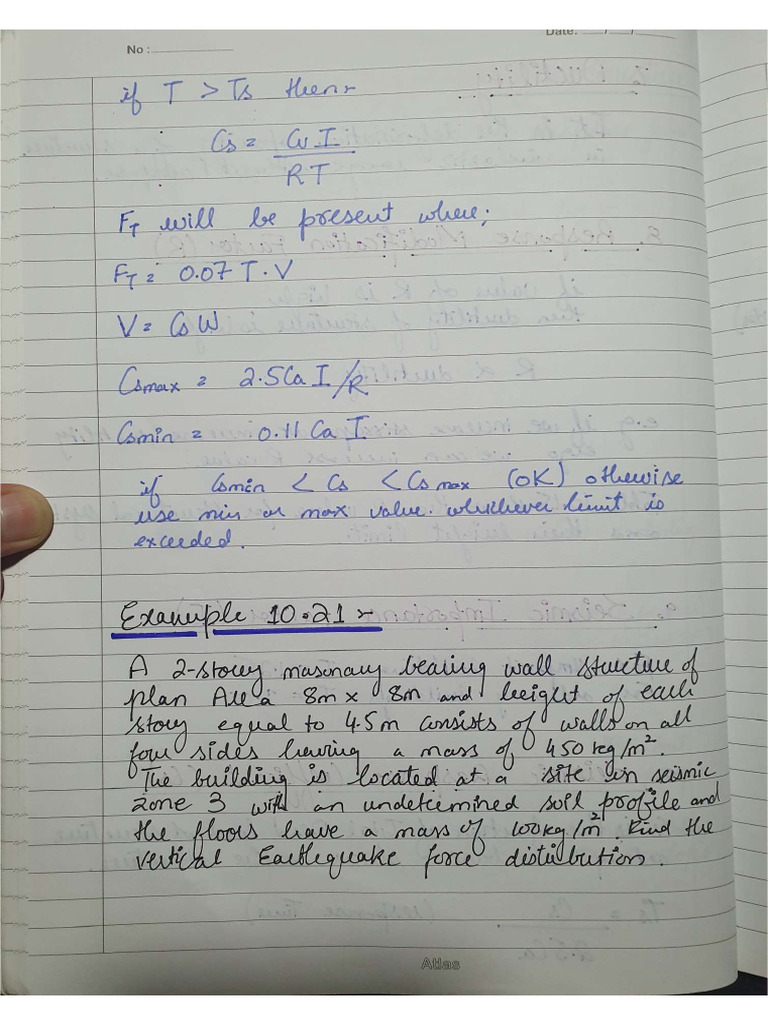 Date: __/__/__
No :
if T > Ts then:-
Cs = CvI
RT
FT will be present where;
FT = 0.07 T.V
V = CsW
Csmax = 2.5CaI/R
Csmin = 0.11 CaI
if Csmin < Cs < Csmax (OK) otherwise
use min or max value whichever limit is
exceeded.
Example 10.21:-
A 2-storey masonary bearing wall structure of
plan Area 8m x 8m and height of each
story equal to 4.5m consists of walls on all
four sides having a mass of 450 kg/m².
The building is located at a site in seismic
zone 3 with an undetermined soil profile and
the floors have a mass of 600kg/m². Find the
vertical Earthquake force distribution.
Atlas